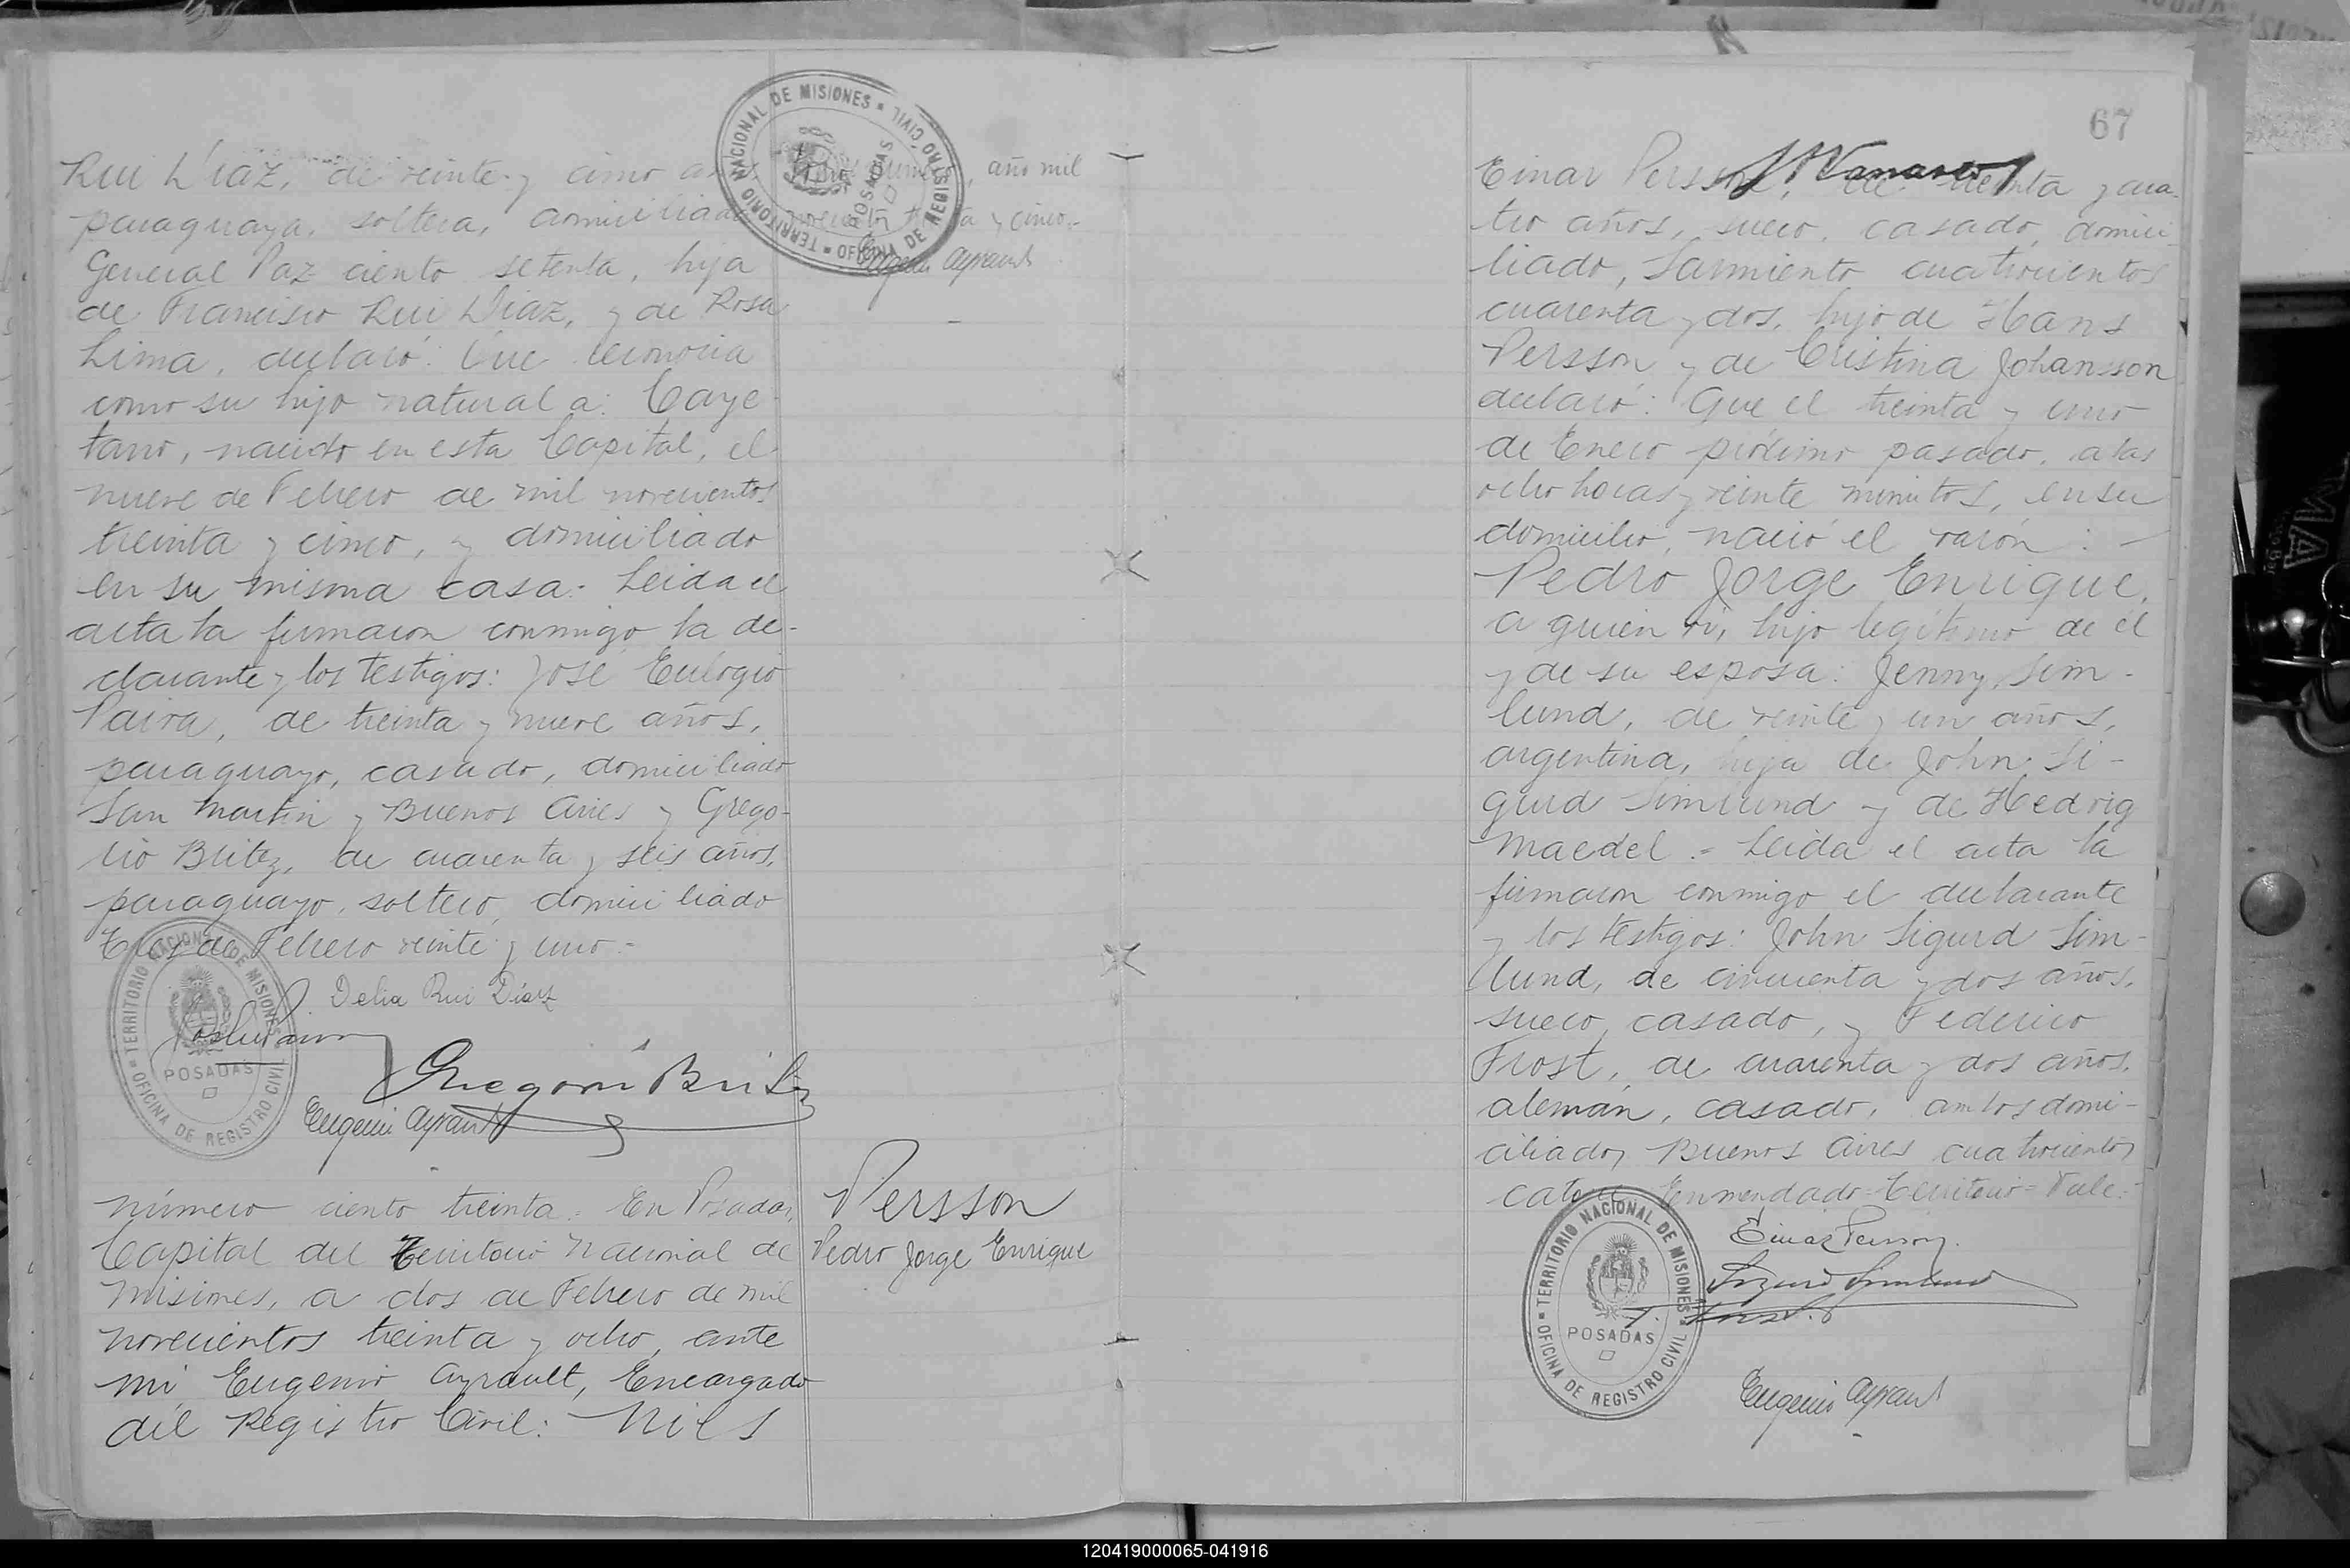 Rui Diaz, de veinte y cinco años,
paraguaya, soltera, domiciliada
General Paz ciento setenta, hija
de Francisco Rui Diaz, y de Rosa
Lima, declaró: Que reconocia
como su hijo natural a: Caye-
tano, nacido en esta Capital, el
nueve de Febrero de mil novecientos
treinta y cinco, y domiciliado
en su misma casa.- Leida el
acta la firmaron conmigo la de-
clarante y los testigos: José Eulogio
Paiva, de treinta y nueve años,
paraguayo, casado, domiciliado
San Martin y Buenos Aires y Grego-
rio Britez, de cuarenta y seis años,
paraguayo, soltero, domiciliado
Tres de Febrero veinte y uno.=
Delia Rui Díaz
Gregorio Britez
Eugenio Ayrault
TERRITORIO NACIONAL DE MISIONES
POSADAS
OFICINA DE REGISTRO CIVIL
año mil
y cinco.-
Eugenio Ayrault
TERRITORIO NACIONAL DE MISIONES
POSADAS
OFICINA DE REGISTRO CIVIL
Número ciento treinta.= En Posadas,
Capital del Territorio Nacional de
Misiones, a dos de Febrero de mil
novecientos treinta y ocho, ante
mi Eugenio Ayrault, Encargado
del Registro Civil: Nils
Persson
Pedro Jorge Enrique
67
Einar Persson, de treinta y cua-
tro años, sueco, casado, domici-
liado, Sarmiento cuatrocientos
cuarenta y dos, hijo de Hans
Persson y de Cristina Johansson
declaró: Que el treinta y uno
de Enero próximo pasado, a las
ocho horas y veinte minutos, en su
domicilio, nació el varón: -
Pedro Jorge Enrique,
a quien vi, hijo legítimo de él
y de su esposa: Jenny Sim-
lund, de veinte y un años,
argentina, hija de John Si-
gurd Simlund y de Hedvig
Maedel.= Leida el acta la
firmaron conmigo el declarante
y los testigos: John Sigurd Sim-
lund, de cincuenta y dos años,
sueco, casado, y Federico
Frost, de cuarenta y dos años,
alemán, casado, ambos domi-
ciliados Buenos Aires cuatrocientos
catorce Enmendado=Territorio=Vale.-
Einar Persson.
Sigurd Simlund
F. Frost.
Eugenio Ayrault
TERRITORIO NACIONAL DE MISIONES
POSADAS
OFICINA DE REGISTRO CIVIL
120419000065-041916